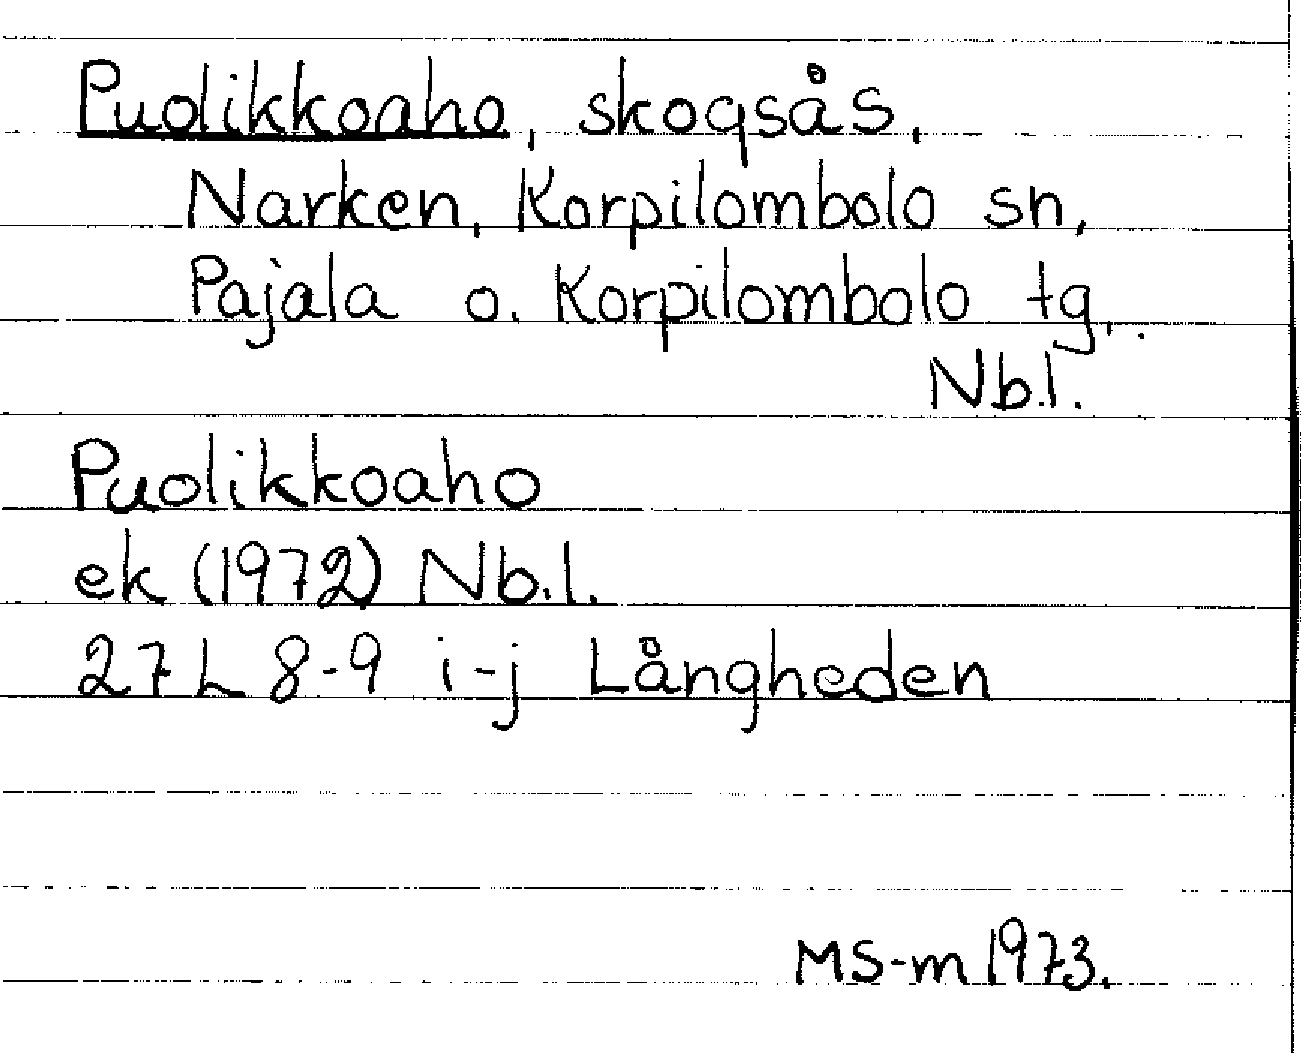 Puolikkoaho, skogsås,
Narken, Korpilombolo sn,
Pajala o. Korpilombolo tg,
Nb.l.
Puolikkoaho
ek (1972) Nb.l.
27L 8-9 i-j Långheden
MS-m 1973.